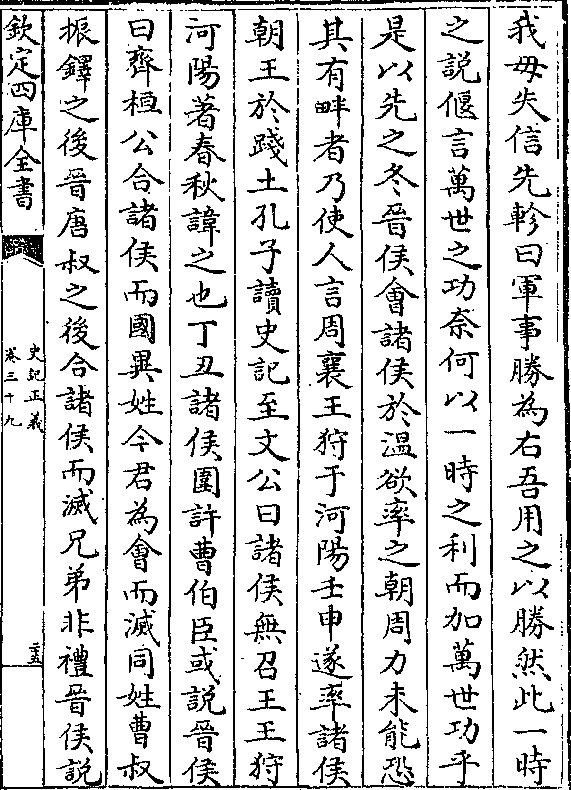 我毋失信先軫曰軍事勝為右吾用之以勝然此一時
之說偃言萬世之功奈何以一時之利而加萬世功乎
是以先之冬晉侯會諸侯於溫欲率之朝周力未能恐
其有畔者乃使人言周襄王狩于河陽壬申遂率諸侯
朝王於踐土孔子讀史記至文公曰諸侯無召王王狩
河陽著春秋諱之也丁丑諸侯圍許曹伯臣或說晉侯
曰齊桓公合諸侯而國異姓今君為會而滅同姓曹叔
振鐸之後晉唐叔之後合諸侯而滅兄弟非禮晉侯說
欽定四庫全書
史記正義
卷三十九
二十五